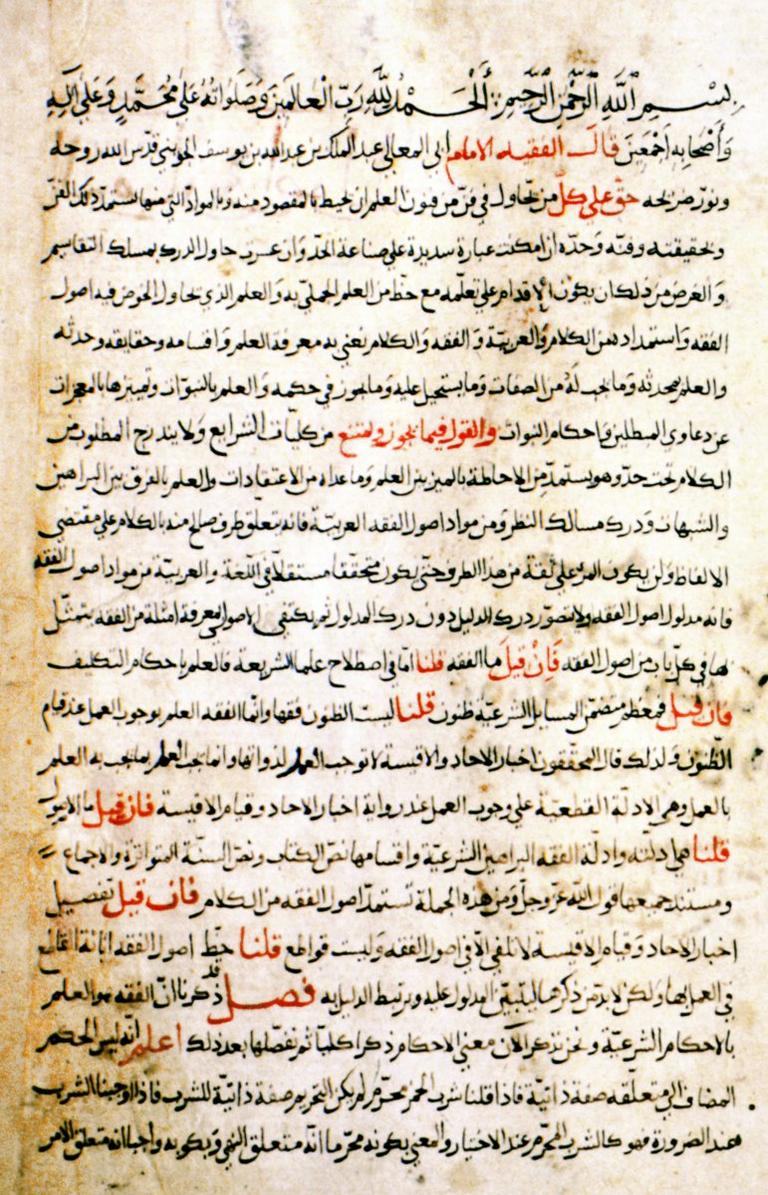 بسم الله الرحمن الرحيم الحمد لله رب العالمين وصلواته على محمد وعلى آله
وأصحابه أجمعين قال الفقيه الامام ابى المعالى عبد الملك بن عبد الله بن يوسف الجوينى قدس الله روحه
ونور ضريحه حق على كل من يحاول فى فن من فنون العلم ان يحيط بالمقصود منه وبالمواد التى منها يستمد ذلك الفن
وبحقيقته وفنه وحده ان امكنت عبارة سديدة على صناعة الحد وان عسر حاول الدرك بمسلك التقاسيم
والغرض من ذلك ان يكون الاقدام على تعلمه مع حظ من العلم الجملى به والعلم الذى يحاول الخوض فيه اصول
الفقه واستمداده من الكلام والعربية والفقه والكلام نعنى به معرفة العلم واقسامه وحقايقه وحدثه
والعلم بمحدثه وما يجب له من الصفات وما يستحيل عليه وما يجوز فى حكمه والعلم بالنبوات وتميزها بالمعجزات
عن دعاوى المبطلين واحكام النبوات والقول فيما يجوز ويمتنع من كليات الشرايع ولا يندرج المطلوب من
الكلام تحت حد وهو يستمد من الاحاطة بالميز بين العلم وما عداه من الاعتقادات والعلم بالفرق بين البراهين
والشبهات ودرك مسالك النظر ومن مواد اصول الفقه العربية فانه يتعلق طرف صالح منه بالكلام على مقتضى
الالفاظ ولن يكون المرء على ثقة من هذا الطرف حتى يكون متحققا مستقلا فى اللغة والعربية ومن مواد اصول الفقه الفقه
فانه مدلول اصول الفقه ولا يتصور درك الدليل دون درك المدلول ثم يكتفى الاصولى بمعرفة امثلة من الفقه يتمثل
بها فى كل باب من اصول الفقه فان قيل ما الفقه قلنا اما فى اصطلاح علما الشريعة فالعلم باحكام التكليف
فان قيل فمعظم متضمن المسايل الشرعية ظنون قلنا ليست الظنون فقها وانما الفقه العلم بوجوب العمل عند قيام
الظنون ولذلك قال المحققون اخبار الاحاد والاقيسة لا توجب العمل لذواتها وانما يجب العمل بما يجب به العلم
بالعمل وهى الادلة القطعية على وجوب العمل عند رواية اخبار الاحاد وقيام الاقيسة فان قيل ما الاصول
قلنا هى ادلته وادلة الفقه البراهين الشرعية واقسامها نص الكتاب ونص السنة المتواترة والاجماع
ومستند جميعها قول الله عز وجل ومن هذه الجملة تستمد اصول الفقه من الكلام فان قيل تفصيل
اخبار الاحاد وقيام الاقيسة لا تلفى الا فى اصول الفقه وليست قواطع قلنا حظ اصول الفقه ابانة القاطع
فى العمل بها ولكن لابد من ذكرها ليتبين المدلول عليه ويرتبط الدليل به فصل قد ذكرنا ان الفقه هو العلم
بالاحكام الشرعية ونحن نذكر الآن معنى الاحكام ذكرا كليا ثم نفصلها بعد ذلك اعلم انه ليس الحكم
المضاف الى متعلقه صفة ذاتية فاذا قلنا شرب الخمر محرم لم يكن التحريم صفة ذاتية للشرب فاذا اوجبنا الشرب
عند الضرورة فهو كالشرب المحرم عند الاختيار والمعنى بكونه محرما انه متعلق النهى وبكونه واجبا انه متعلق الامر